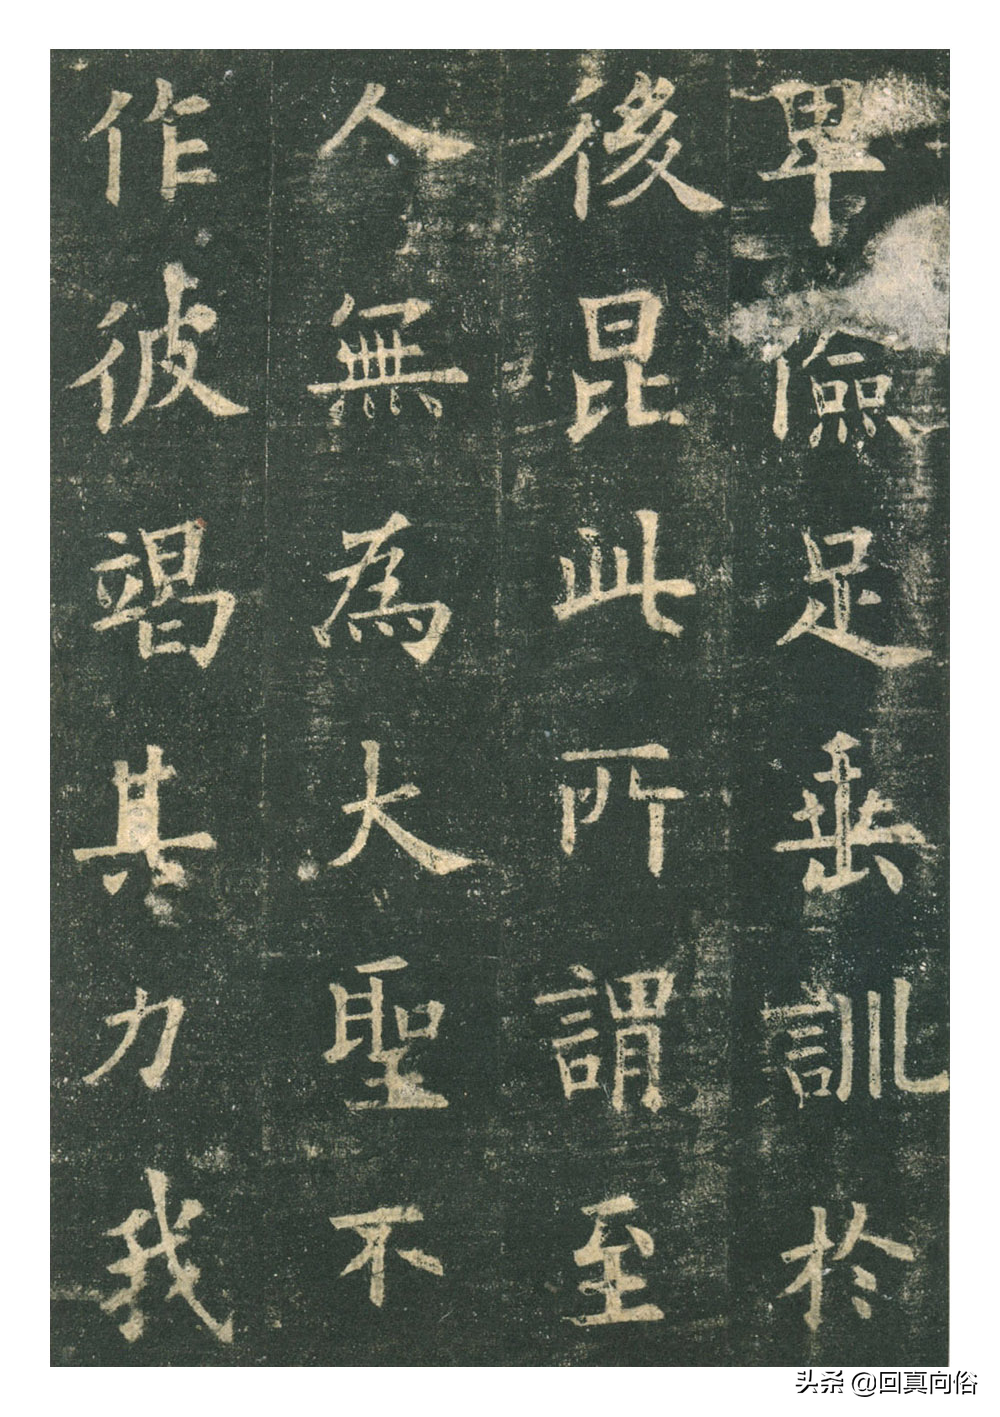 卑儉足垂訓於
後昆此所謂至
人無為大聖不
作彼竭其力我
头条 @回真向俗